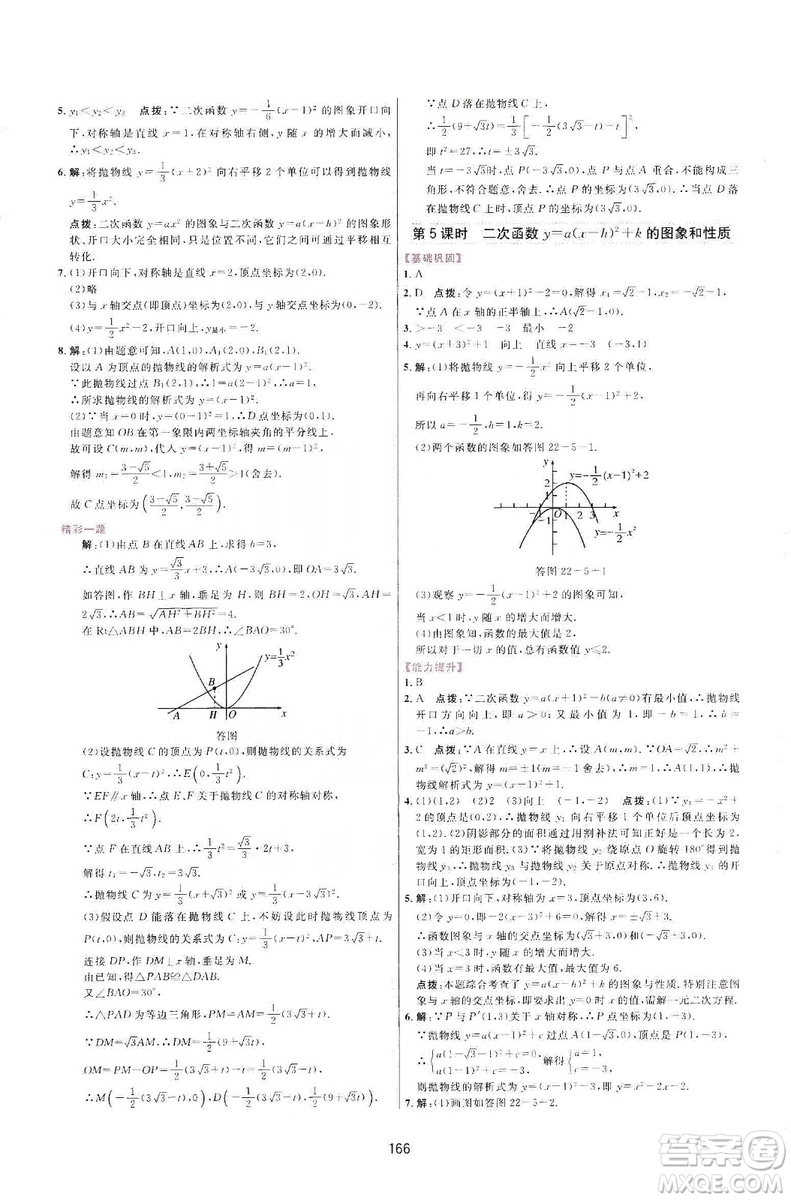 5. y₁<y₃<y₂　点拨：∵二次函数 y=-1/6(x-1)² 的图象开口向
下,对称轴是直线 x=1,在对称轴右侧,y 随 x 的增大而减小,
∴y₁<y₃<y₂.
6. 解:将抛物线 y=1/3(x+2)² 向右平移 2 个单位可以得到抛物线
y=1/3x².
点拨:二次函数 y=ax² 的图象与二次函数的图象形
状、开口大小完全相同,可以通过相互平移
转化.
7. (1)开口向下,对称轴为 y 轴,顶点坐标为(2,0).
(2)略
(3)与 x 轴交点(即顶点)坐标为(2,0),与 y 轴交点坐标为
(0,-2).
(4)y=1/2x²-2,开口向上,y最小=-2.
8. 解:(1)由题意可知,A(1,0),A₁(2,0),B₁(2,1).
设以 A 为顶点的抛物线的解析式为 y=a(x-1)².
∵此抛物线过点 B₁(2,1),∴1=a(2-1)²,∴a=1,
∴所求抛物线的解析式为 y=(x-1)².
(2)∵当 x=0 时,y=(0-1)²=1,∴D 点坐标为(0,1).
由题意知 OB 在第一象限内两坐标轴夹角的平分线上,
故可设 C(m,m),代入 y=(x-1)²,得 m=(m-1)²,
解得 m₁=(3-√5)/2<1,m₂=(3+√5)/2>1(舍去).
故 C 点坐标为((3-√5)/2,(3-√5)/2).
精彩一题
解:(1)由点 B 在直线 AB 上,求得 b=3,
∴直线 AB 为 y=√3/3x+3,∴A(-3√3,0),即 OA=3√3.
如答图,作 BH⊥x 轴,垂足为 H,则 BH=2,OH=√3,AH=
2√3,∴AB=√(AH²+BH²)=4.
在 Rt△ABH 中,AB=2BH,∴∠BAO=30°.
y
y=1/3x²
B
A H O x
答图
(2)设抛物线 C 的顶点为 P(t,0),则抛物线的关系式为
C:y=1/3(x-t)²,∴E(0,1/3t²).
∵EF∥x 轴,∴点 E,F 关于抛物线 C 的对称轴对称,
∴F(2t,1/3t²).
∵点 F 在直线 AB 上,∴1/3t²=√3/3×2t+3.
解得 t₁=-√3,t₂=3√3.
∴抛物线 C 为 y=1/3(x-3√3)² 或 y=1/3(x+√3)².
(3)假设点 D 能落在抛物线 C 上,不妨设此时抛物线顶点为
P(t,0),则抛物线的关系式为 C:y=1/3(x-t)²,AP=3√3+t,
连接 DP,作 DM⊥x 轴,垂足为 M.
由已知,得△PAB≌△DAB.
又∵∠BAO=30°,
∴△PAD 为等边三角形,PM=AM=1/2(3√3+t),
∵tan∠DAM=DM/AM=√3,
∴DM=√3AM=√3×1/2(3√3+t)=1/2(9+√3t),
∴OM=PM-OP=1/2(3√3+t)-t=1/2(3√3-t),
∴M[-1/2(3√3-t),0],D[-1/2(3√3-t),1/2(9+√3t)].
∵点 D 落在抛物线 C 上,
∴1/2(9+√3t)=1/3[-1/2(3√3-t)-t]²,
即 t²=27,∴t=±3√3.
当 t=-3√3时,此时点 P(-3√3,0),点 P 与点 A 重合,不能构成三
角形,不符合题意,舍去.∴点 P 的坐标为(3√3,0).
第 5 课时　二次函数 y=a(x-h)²+k 的图象和性质
【基础巩固】
1. A
2. D　点拨:令 y=0,则-(x+1)²+2=0,解得 x₁=√2-1,x₂=-√2-1,
∵点 A 在 x 轴的正半轴上,∴A(√2-1,0).
3. >-3　<-3　-3　最小　-2
4. y=(x+3)²-1　向上　直线 x=-3　(-3,-1)
5. 解:(1)将抛物线 y=-1/2x² 向上平移 2 个单位,
再向右平移 1 个单位,可以得到抛物线 y=-1/2(x-1)²+2,
所以 a=-1/2,h=1,k=2.
(2)两个函数的图象如答图 22-5-1.
y
y=-1/2(x-1)²+2
-1 O 1 2 3 x
-1
y=-1/2x²
答图 22-5-1
(3)观察 y=-1/2(x-1)²+2 的图象可知,
当 x<1 时,y 随 x 的增大而增大,
当 x>1 时,y 随 x 的增大而减小.
(4)由图象知,函数的最大值是 2,
所以对于一切 x 的值,总有函数值 y≤2.
【能力提升】
1. B
2. A　点拨:∵二次函数 y=a(x+1)²-b(a≠0)有最小值,∴抛物线
开口方向向上,即 a>0,
∴a>b.
3. C　点拨:∵点 A 在直线 y=x 上,∴A(m,m),∵OA=√2,∴m²+
m²=(√2)²,解得 m=±1
∴抛
4. (1)(1,2)　(2)2　(3)向上　(-1,-2)　点拨:(1)∵抛物线 y₁=-x²+
2 的顶点是(0,2),∴抛物线 y₁ 向右平移 1 个单位得到
(1,2).(2)阴影部分的面积通过用割补法可正好是一个长为 2,
宽为 1 的矩形面积.(3)抛物线 y₂ 绕原点 O 旋转 180°得到抛物
线 y₃,则抛物线 y₃ 与抛物线 y₂ 关于原点对称.
5. (1)开口向上,对称轴为直线 x=3,顶点坐标为(3,6).
(2)令 y=0,即-2(x-3)²+6=0,解得 x₁=√3+3,x₂=-√3+3,
∴函数图象与 x 轴的交点坐标为(√3+3,0),(-√3+3,0).
(3)函数有最大值,最大值为 6.
点拨:本题综合考查了 y=a(x-h)²+k 的图象与性质,特别注意图
象与 x 轴的交点坐标,即要使 y=0,求得 x 的值,需解一元二次方程.
6. 解:∵P 与 P′(1,3)关于 x 轴对称,∴P 点坐标为(1,-3).
∵抛物线 y=a(x-1)²+c 过点 A(1-√3,0),顶点是 P(1,-3),
∴{a(1-√3-1)²+c=0,a(1-1)²+c=-3,解得{a=1,c=-3,
则抛物线的解析式为 y=(x-1)²-3,
7. 解:(1)画图如答图 22-5-2.
166
答案圈
MXQE.COM